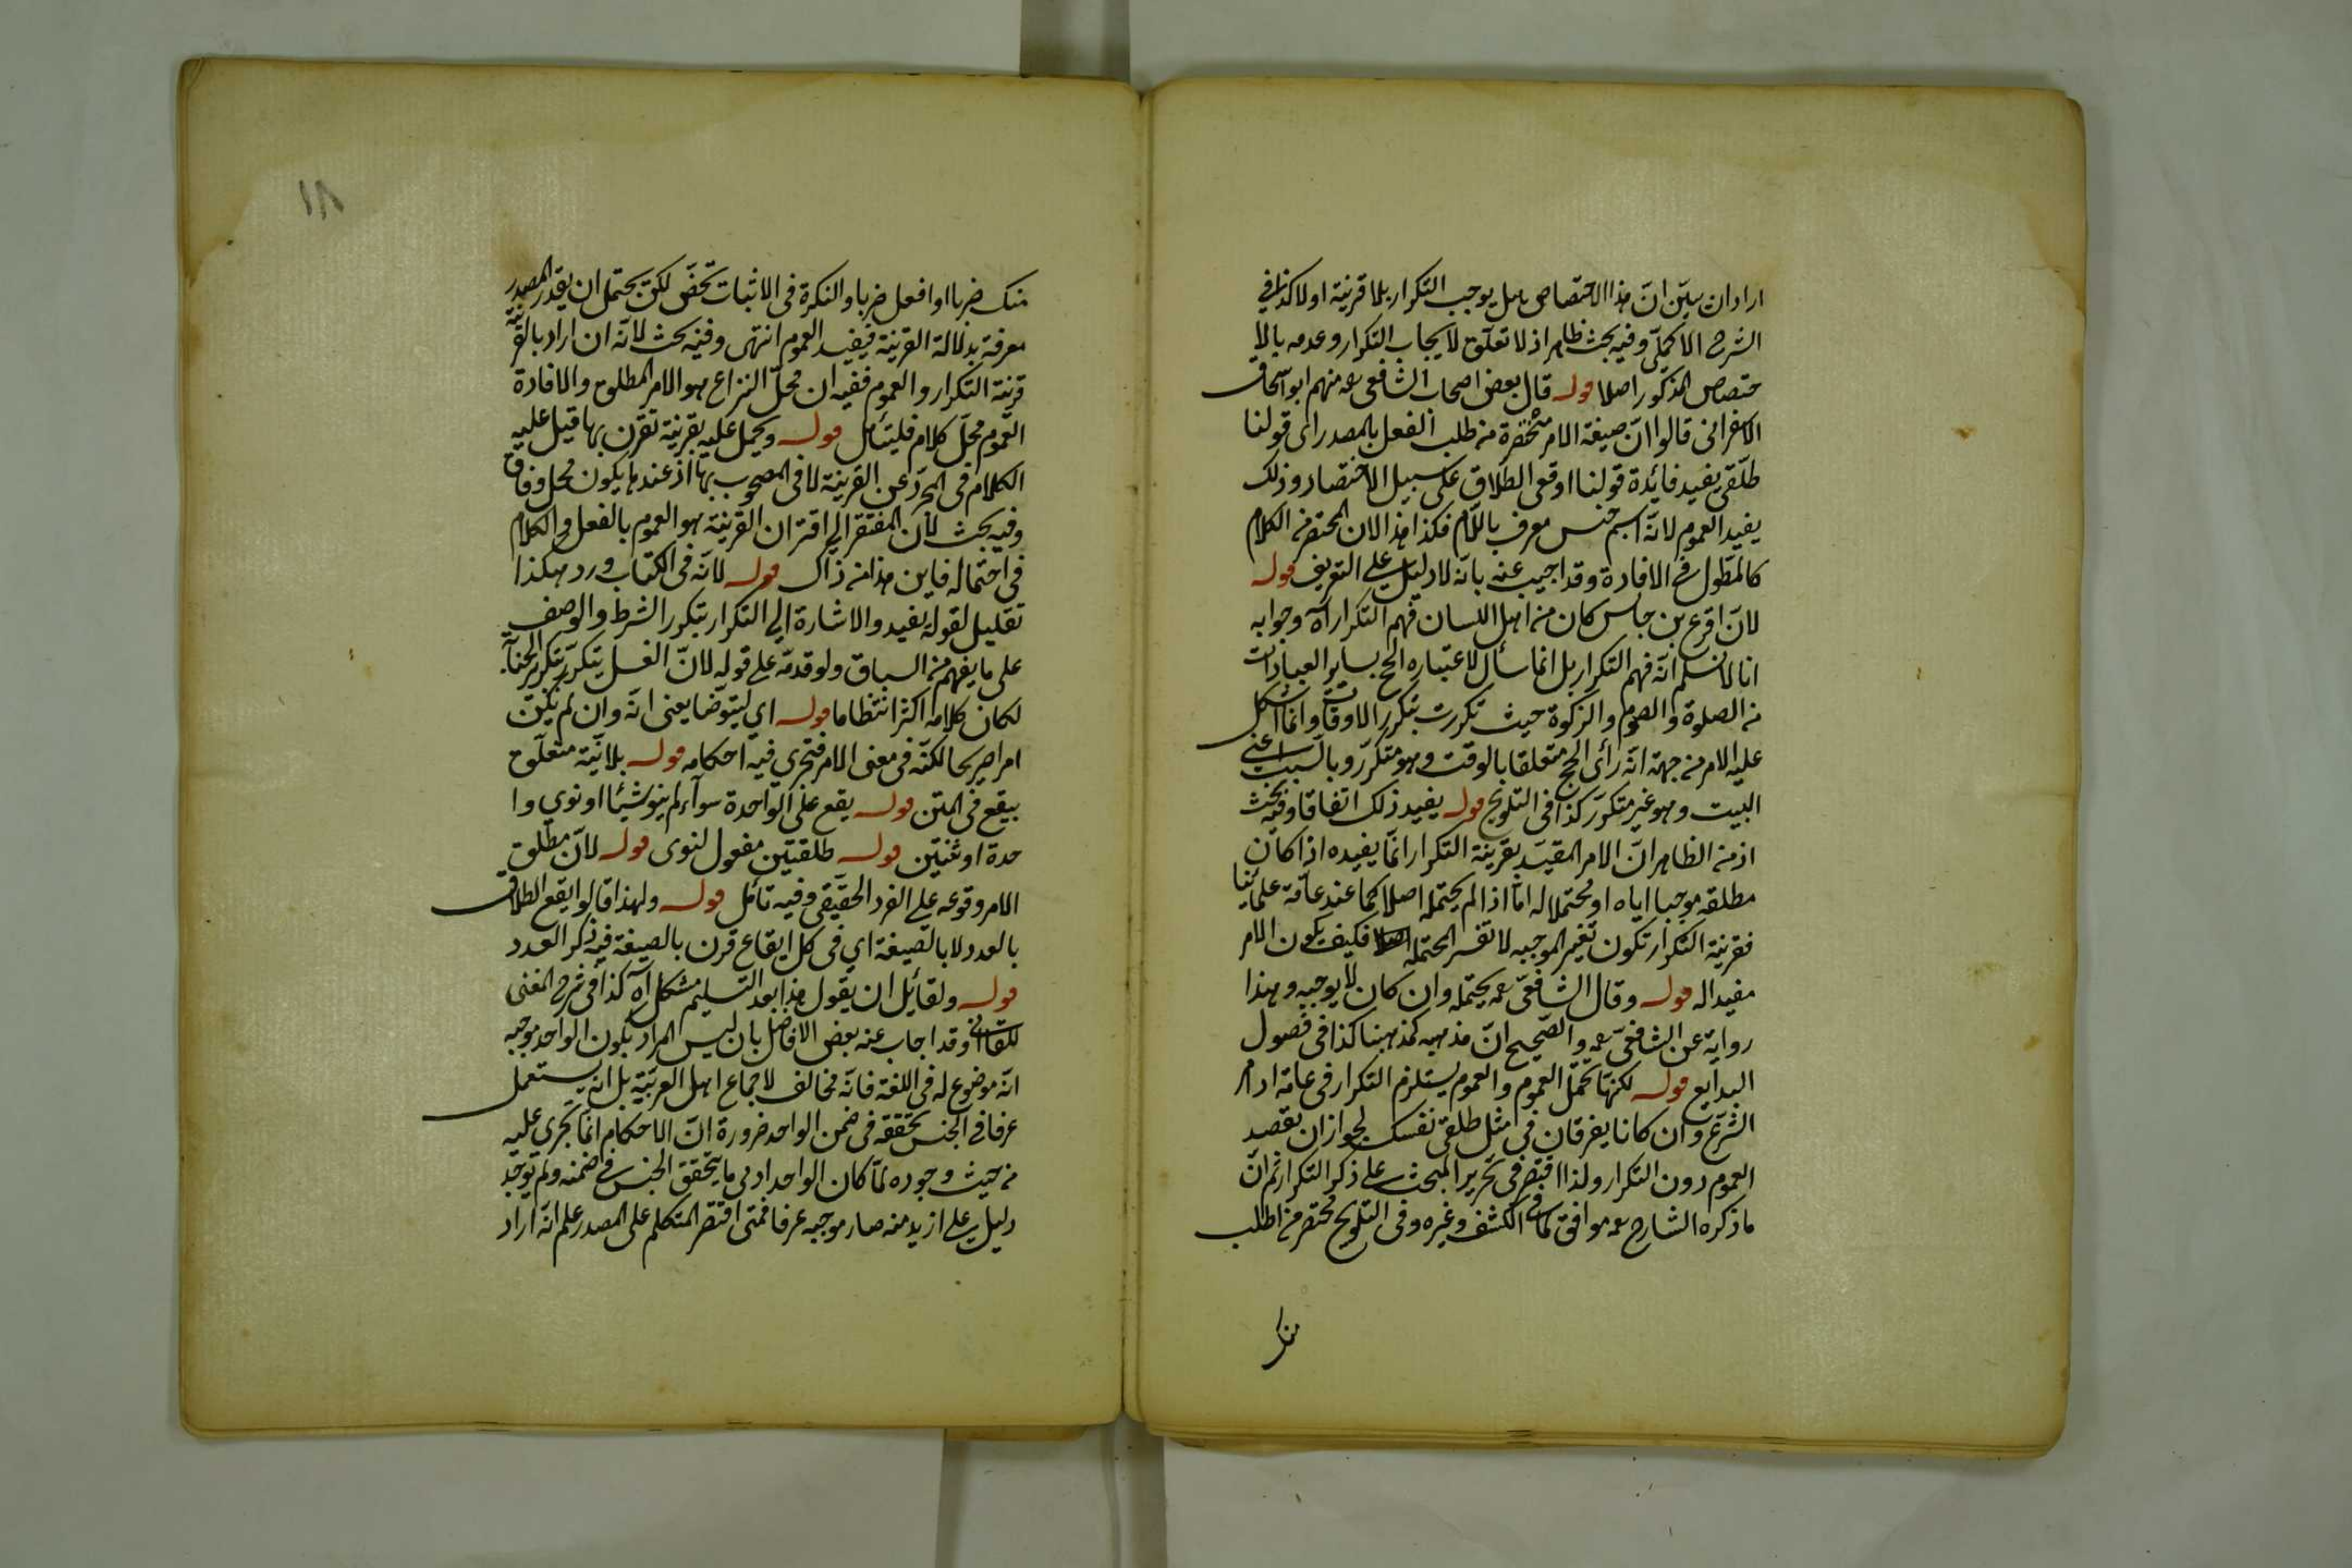 اراد ان يبين ان هذا الاختصاص هل يوجب التكرار بلا قرينة اولا كذا في
الشرح الاكملي وفيه بحث ظاهر اذ لا تعلق لايجاب التكرار وعدمه بالا
ختصاص المذكور اصلا قوله قال بعض اصحاب الشافعي رحمه منهم ابو اسحاق
الاسفرائني قالوا ان صيغة الامر مختصرة من طلب الفعل بالمصدر اى قولنا
طلقي يفيد فائدة قولنا اوقعي الطلاق على سبيل الاختصار وذلك
يفيد العموم لانه اسم جنس معرف باللام فكذا هذا لان المختصر من الكلام
كالمطول في الافادة وقد اجيب عنه بانه لا دليل على التعريف قوله
لان اقرع بن حابس كان من اهل اللسان فهم التكرار آه وجوابه
انا لا نسلم انه فهم التكرار بل انما سأل لاعتباره الحج بساير العبادات
من الصلوة والصوم والزكوة حيث تكررت بتكرر الاوقات وانما اشكل
عليه الامر من جهة انه رأى الحج متعلقا بالوقت وهو متكرر وبالسبب اعنى
البيت وهو غير متكرر كذا فى التلويح قوله يفيد ذلك اتفاقا وفيه بحث
اذ من الظاهر ان الامر المقيد بقرينة التكرار انما يفيده اذا كان
مطلقه موجبا اياه او محتملا له اما اذا لم يحتمله اصلا كما عند عامة علمائنا
فقرينة التكرار تكون تغير الموجبه لا تفسر المحتمله فكيف يكون الامر
مفيدا له قوله وقال الشافعى رحمه يحتمله وان كان لا يوجبه وهذا
رواية عن الشافعى رحمه والصحيح ان مذهبه كمذهبنا كذا فى فصول
البدايع قوله لكنها تحتمل العموم والعموم يستلزم التكرار فى عامة اوامر
الشرع وان كانا يفرقان فى مثل طلقى نفسك لجواز ان يقصد
العموم دون التكرار ولذا اقتصر فى تحرير المبحث على ذكر التكرار ثم ان
ما ذكره الشارح رحمه موافق لما فى الكشف وغيره وفى التلويح مختصر من اطلب
منك
١٨
منك ضربا او افعل ضربا والنكرة فى الاثبات تخص لكن يحتمل ان يقدر المصدر
معرفة بدلالة القرينة فيفيد العموم انتهى وفيه بحث لانه ان اراد بالقرينة
قرينة التكرار والعموم ففيه ان محل النزاع هو الامر المطلق والافادة
العموم محل كلام فليتأمل قوله ويحمل عليه بقرينة تقرن بها قيل عليه
الكلام فى المجرد عن القرينة لا فى المصحوب بها اذ عندها يكون محل وفاق
وفيه بحث لان المفتقر الى اقتران القرينة هو العموم بالفعل والكلام
فى احتماله فاين هذا من ذاك قوله لانه فى الكتاب ورد هكذا
تعليل لقوله يفيد والاشارة الى التكرار بتكرر الشرط والوصف
على ما يفهم من السياق ولو قدمه على قوله لان الغسل يتكرر بتكرر الجنابة
لكان كلامه اكثر انتظاما قوله اى ليتوضأ يعنى انه وان لم يكن
امرا صريحا لكنه فى معنى الامر فتجرى فيه احكامه قوله بلا نية متعلق
بيقع فى المتن قوله يقع على الواحدة سوآء لم ينو شيئا او نوى وا
حدة او ثنتين قوله طلقتين مفعول لنوى قوله لان مطلق
الامر وقوعه على الفرد الحقيقى وفيه تأمل قوله ولهذا قالوا يقع الطلاق
بالعدد لا بالصيغة اى فى كل ايقاع قرن بالصيغة فيه ذكر العدد
قوله ولقائل ان يقول هذا بعد التسليم مشكل آه كذا فى شرح المغنى
للقاآنى وقد اجاب عنه بعض الافاضل بان ليس المراد بكون الواحد موجبه
انه موضوع له فى اللغة فانه مخالف لاجماع اهل العربية بل انه يستعمل
عرفا فى الجنس بتحققه فى ضمن الواحد ضرورة ان الاحكام انما يجرى عليه
من حيث وجوده لما كان الواحد ادنى ما يتحقق الجنس فى ضمنه ولم توجد
دليل على ازيد منه صار موجبه عرفا فمتى اقتصر المتكلم على المصدر علم انه اراد